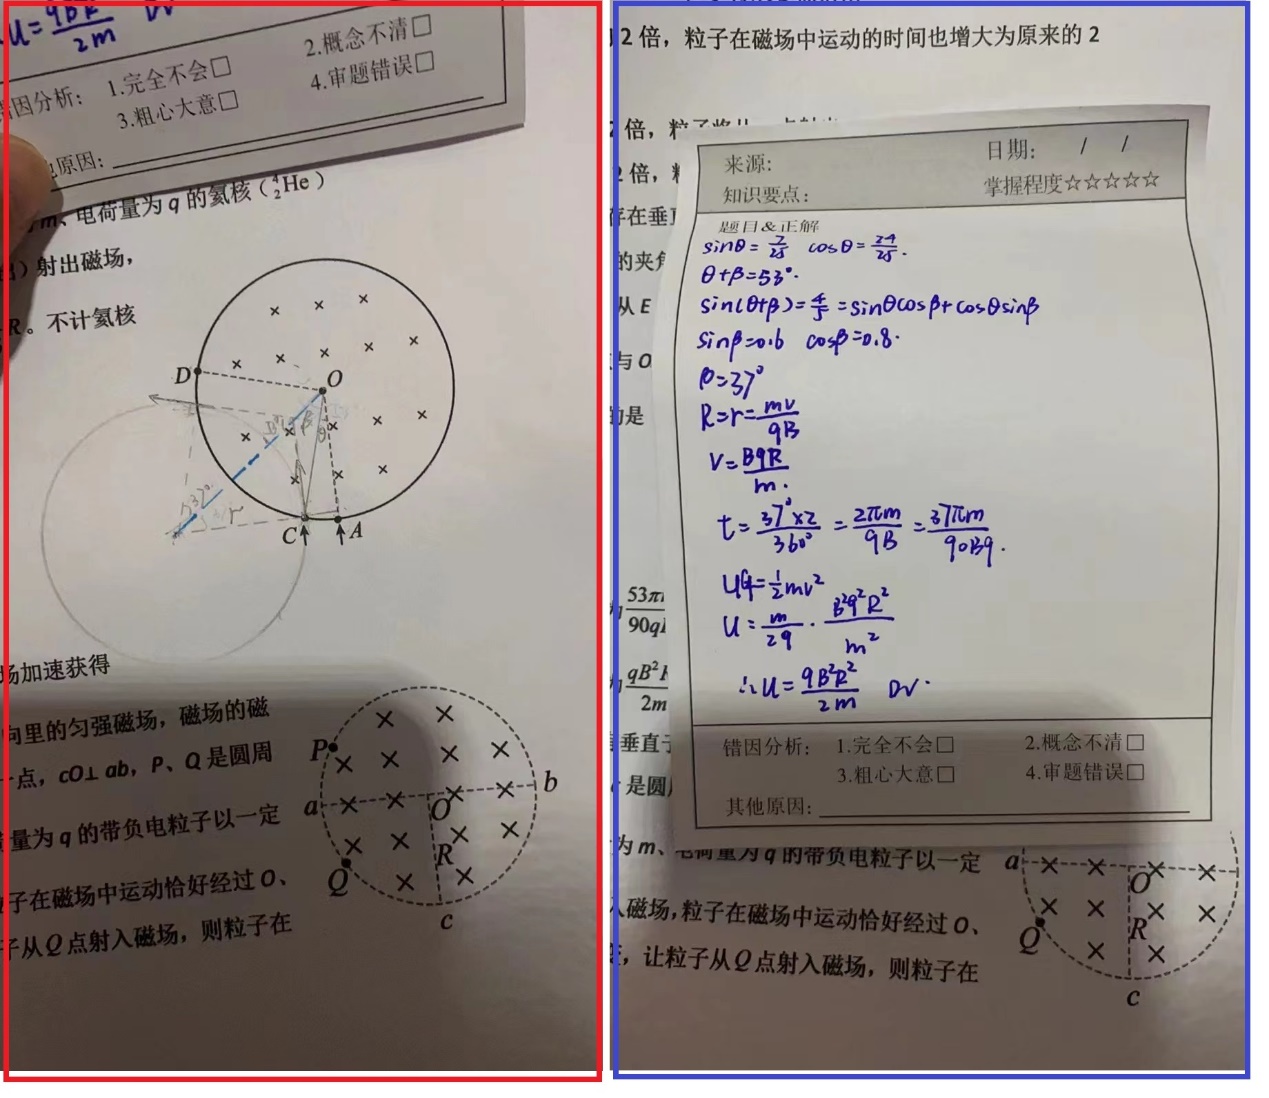 U=qBR/2m DV
错因分析： 1.完全不会□ 2.概念不清□
3.粗心大意□ 4.审题错误□
原因：
m、电荷量为 q 的氦核（⁴₂He）
）射出磁场，
R。不计氦核
D
O
β
θ
53°
37°
r
C
A
场加速获得
向里的匀强磁场，磁场的磁
一点，cO⊥ab，P、Q 是圆周
量为 q 的带负电粒子以一定
子在磁场中运动恰好经过 O、
子从 Q 点射入磁场，则粒子在
P
a
b
O
R
Q
c
2 倍，粒子在磁场中运动的时间也增大为原来的 2
倍，粒子将从
2 倍，
存在垂直
的夹角
从 E
与 O
的是
53π
90q
qB²
2m
垂直于
是圆
为 m、电荷量为 q 的带负电粒子以一定
入磁场，粒子在磁场中运动恰好经过 O、
，让粒子从 Q 点射入磁场，则粒子在
来源： 日期： / /
知识要点： 掌握程度☆☆☆☆☆
题目&正解
sinθ=7/25 cosθ=24/25.
θ+β=53°.
sin(θ+β)=4/5=sinθcosβ+cosθsinβ
sinβ=0.6 cosβ=0.8.
β=37°
R=r=mv/qB
v=BqR/m.
t=37°×2/360°=2πm/qB=37πm/90Bq.
Uq=1/2mv²
U=m/2q·B²q²R²/m²
∴U=qB²R²/2m DV.
错因分析： 1.完全不会□ 2.概念不清□
3.粗心大意□ 4.审题错误□
其他原因：
a
O
R
Q
c